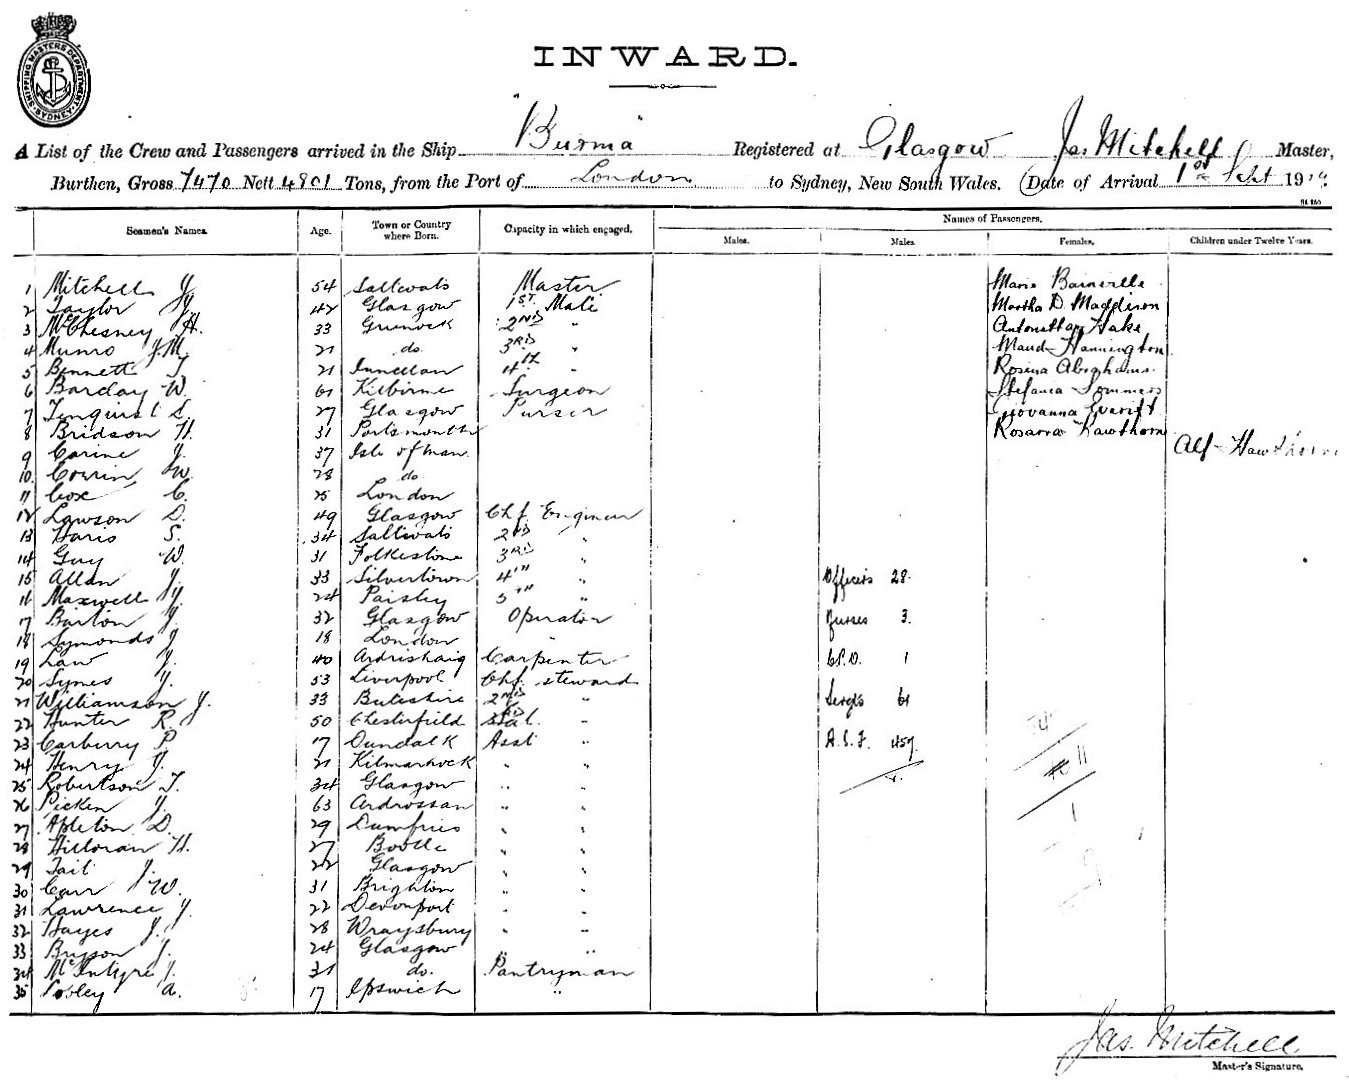 SHIPPING MASTERS DEPARTMENT SYDNEY
INWARD.
A List of the Crew and Passengers arrived in the Ship "Burma" Registered at Glasgow Jas Mitchell Master,
Burthen, Gross 7470 Nett 4801 Tons, from the Port of London to Sydney, New South Wales. (Date of Arrival 1st Sept 19
Seamen's Names. Age. Town or Country where Born. Capacity in which engaged. Names of Passengers.
Males. Males. Females. Children under Twelve Years.
1 Mitchell J 54 Saltcoats Master Marie Bainville
2 Taylor J 42 Glasgow 1ST Mate Martha D. Maddison
3 McChesney H. 33 Grenock 2ND " Hake
4 Munro J.M. 21 do. 3RD " Maud Hannington
5 Bennett T 21 Innellan 4th " Rosina Abrahams
6 Barclay W. 61 Kilbirnie Surgeon Stefania Sommers
7 S. 27 Glasgow Purser Giovanna Everitt
8 Bridson H. 31 Portsmouth Hawthorne
9 J. 37 Isle of Man Alf Hawthorne
10 W. 28 do.
11 Cox C. 25 London
12 Lawson D. 49 Glasgow Chf Engineer
13 Haris S. 34 Saltcoats 2ND "
14 Guy W. 31 Folkestone 3RD "
15 Allan J. 33 Silvertown 4th " Officers 28.
16 Maxwell J. 24 Paisley 5th "
17 Barton J. 32 Glasgow Operator Nurses 3.
18 Symonds J 18 London "
19 Law J. 40 Ardrishaig Carpenter 1
20 Symes J. 53 Liverpool Chf. steward
21 Williamson J. 33 Buteshire 2ND " Sergts 61
22 Hunter R. 50 Chesterfield "
23 Carberry P. 17 Dundalk Asst " A.I.F. 457
24 Henry J. 21 Kilmarnock " "
25 Robertson T. 34 Glasgow " "
26 Picken J. 63 Ardrossan " "
27 Apleton D. 29 Dumfries " "
28 Hilloran H. 27 Bootle " "
29 Tait J. 22 Glasgow " "
30 Carr J W. 31 Brighton " "
31 Lawrence J. 22 Devonport " "
32 Hayes J. 28 Wraysbury " "
33 Bryson J. 24 Glasgow " "
34 McIntyre J. 31 do. Pantryman
35 A. 17 Ipswich "
11
1
Jas. Mitchell
Master's Signature.